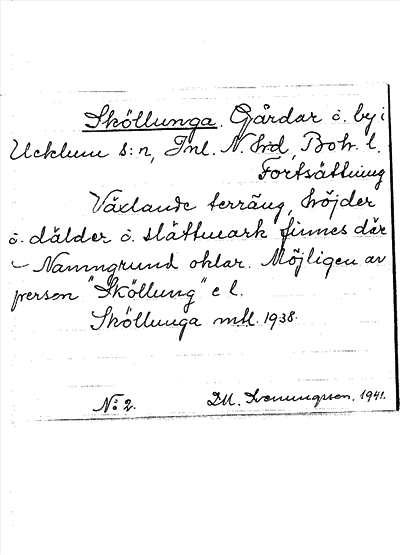 Sköllunga. Gårdar o. by i
Ucklum s:n, Inl. N. hrd, Boh. l.
Fortsättning
Växlande terräng, höjder
o. dälder o. slättmark finnes där
– Namngrund oklar. Möjligen av
person "Sköllung" e l.
Sköllunga mtl. 1938.
No: 2. DM. 1941.